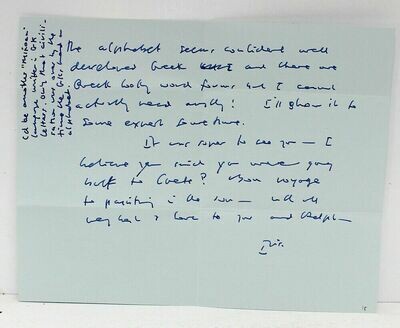 The alphabet seems confident well
developed Greek and there are
Greek looking word forms but I cannot
actually read anything! I'll show it to
some expert sometime.
It was super to see you — I
believe you said you were going
back to Crete? Bon voyage
to painting in the sun — with all
very best & love to you and
Iris.
cd be another "Minoan"
language written in Gk
letters. Only that civili-
ration was over by the
time the Gks had an
alphabet